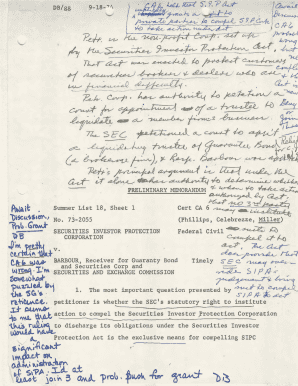 DB/SS 9-18-
CA6 held that S.I.P. Act
private parties to compel SIPC to
take action under Act
Petr is the non-profit Corp. set up
by the Securities Investor Protection Act.
That act was enacted to protect customers
of securities brokers & dealers who are
in financial difficulty.
Petr Corp. has authority to petition a
court for appointment of a trustee to
liquidate a member firm's business.
The SEC petitioned a court to appoint
a liquidating trustee of Guarantee Bond
(a brokerage firm), & Resp. Barbour was
Petr's principal argument is that under the
Act it alone has authority to determine whether
& when to take action
PRELIMINARY MEMORANDUM
Summer List 18, Sheet 1
No. 73-2055
SECURITIES INVESTOR PROTECTION
CORPORATION
v
BARBOUR, Receiver for Guaranty Bond
and Securities Corp and
SECURITIES AND EXCHANGE COMMISSION
Cert CA 6
(Phillips, Celebreze, Miller)
Federal Civil
Timely
1. The most important question presented by
petitioner is whether the SEC's statutory right to institute
action to compel the Securities Investor Protection Corporation
to discharge its obligations under the Securities Investor
Protection Act is the exclusive means for compelling SIPC
Await
Discussion,
Prob. Grant
DB
I'm pretty
certain that
CA6 was
wrong. I'm
somewhat
puzzled by
the SG's
reticence.
It seems
to me that
this ruling
would have
a
significant
impact on
administration
of SIPA. I'd at
least join 3 and prob. push for grant DB